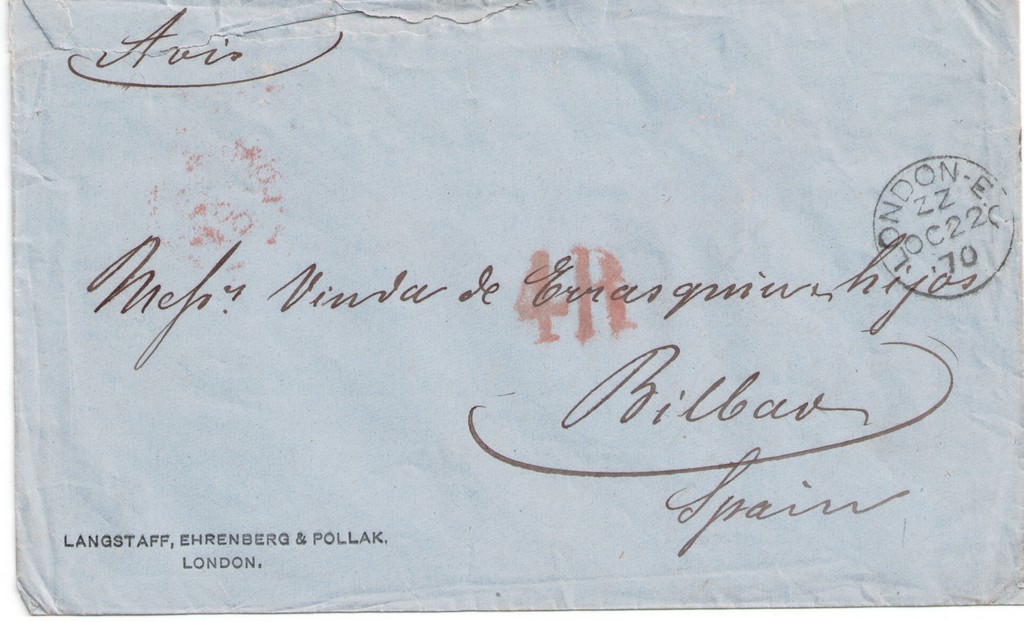 Avis
LONDON-E.C
ZZ
OC 22
70
4R
Messrs. Viuda de Errasquin e hijos
Bilbao
Spain
LANGSTAFF, EHRENBERG & POLLAK.
LONDON.